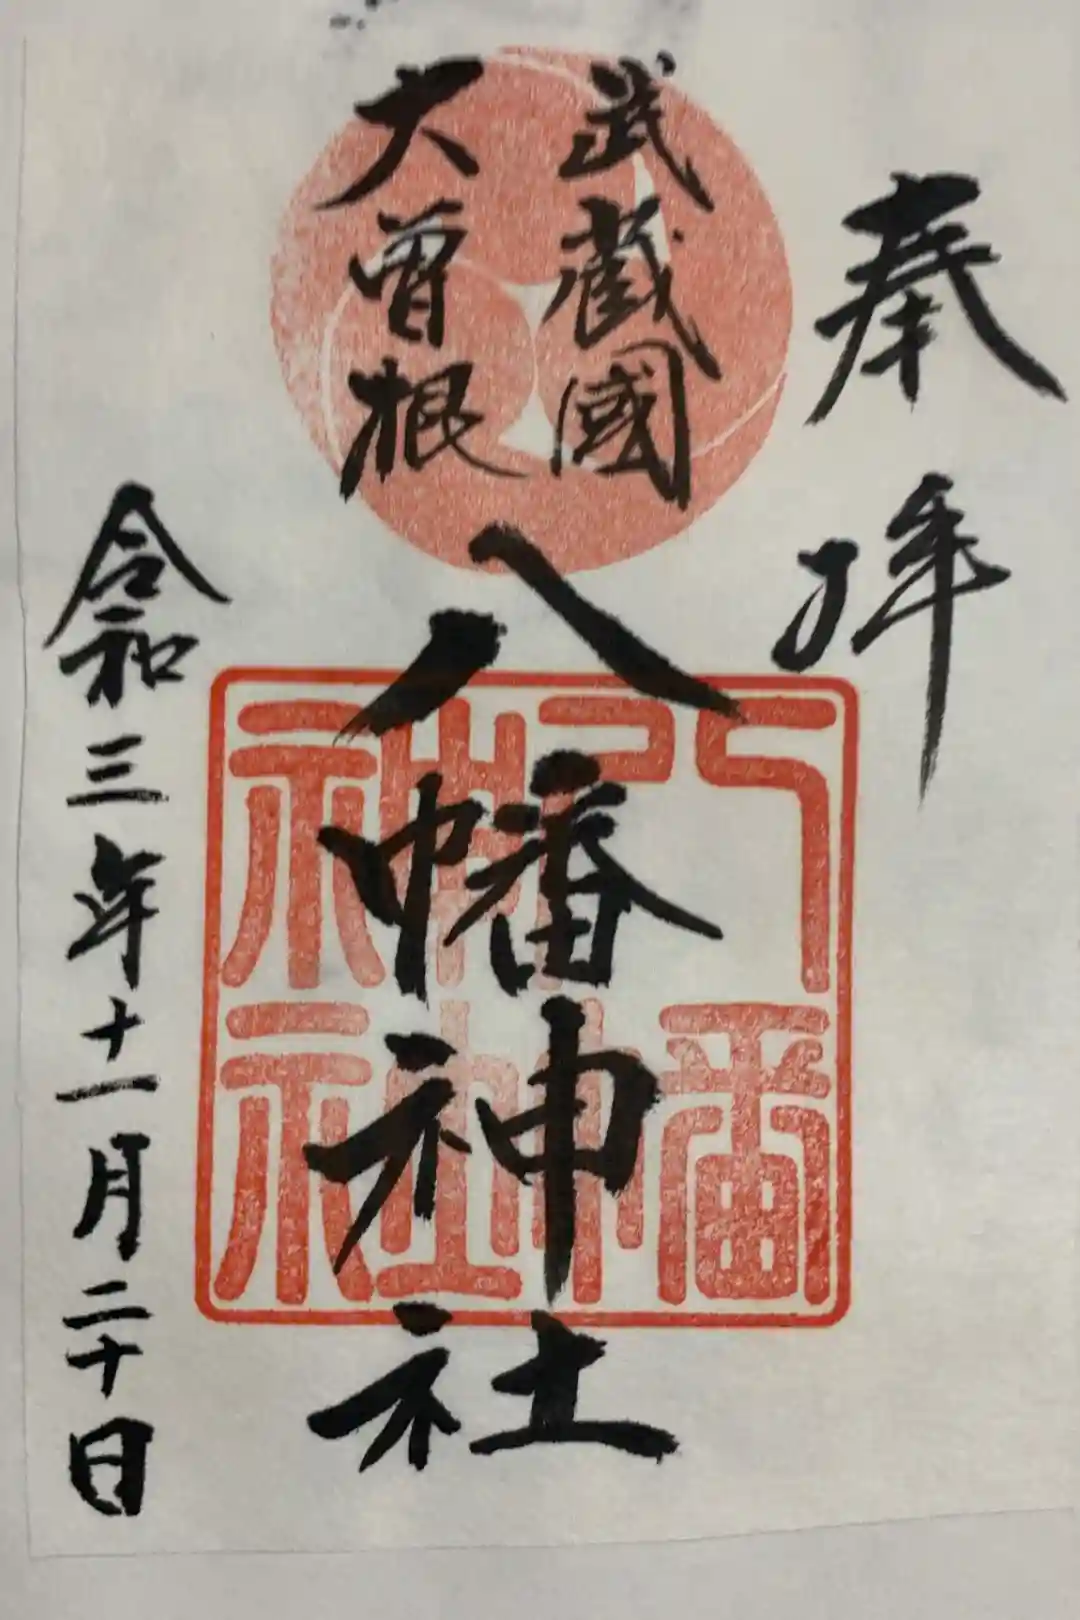 奉拜
武蔵國
大曽根
八幡神社
八幡
神社
令和三年十一月二十日